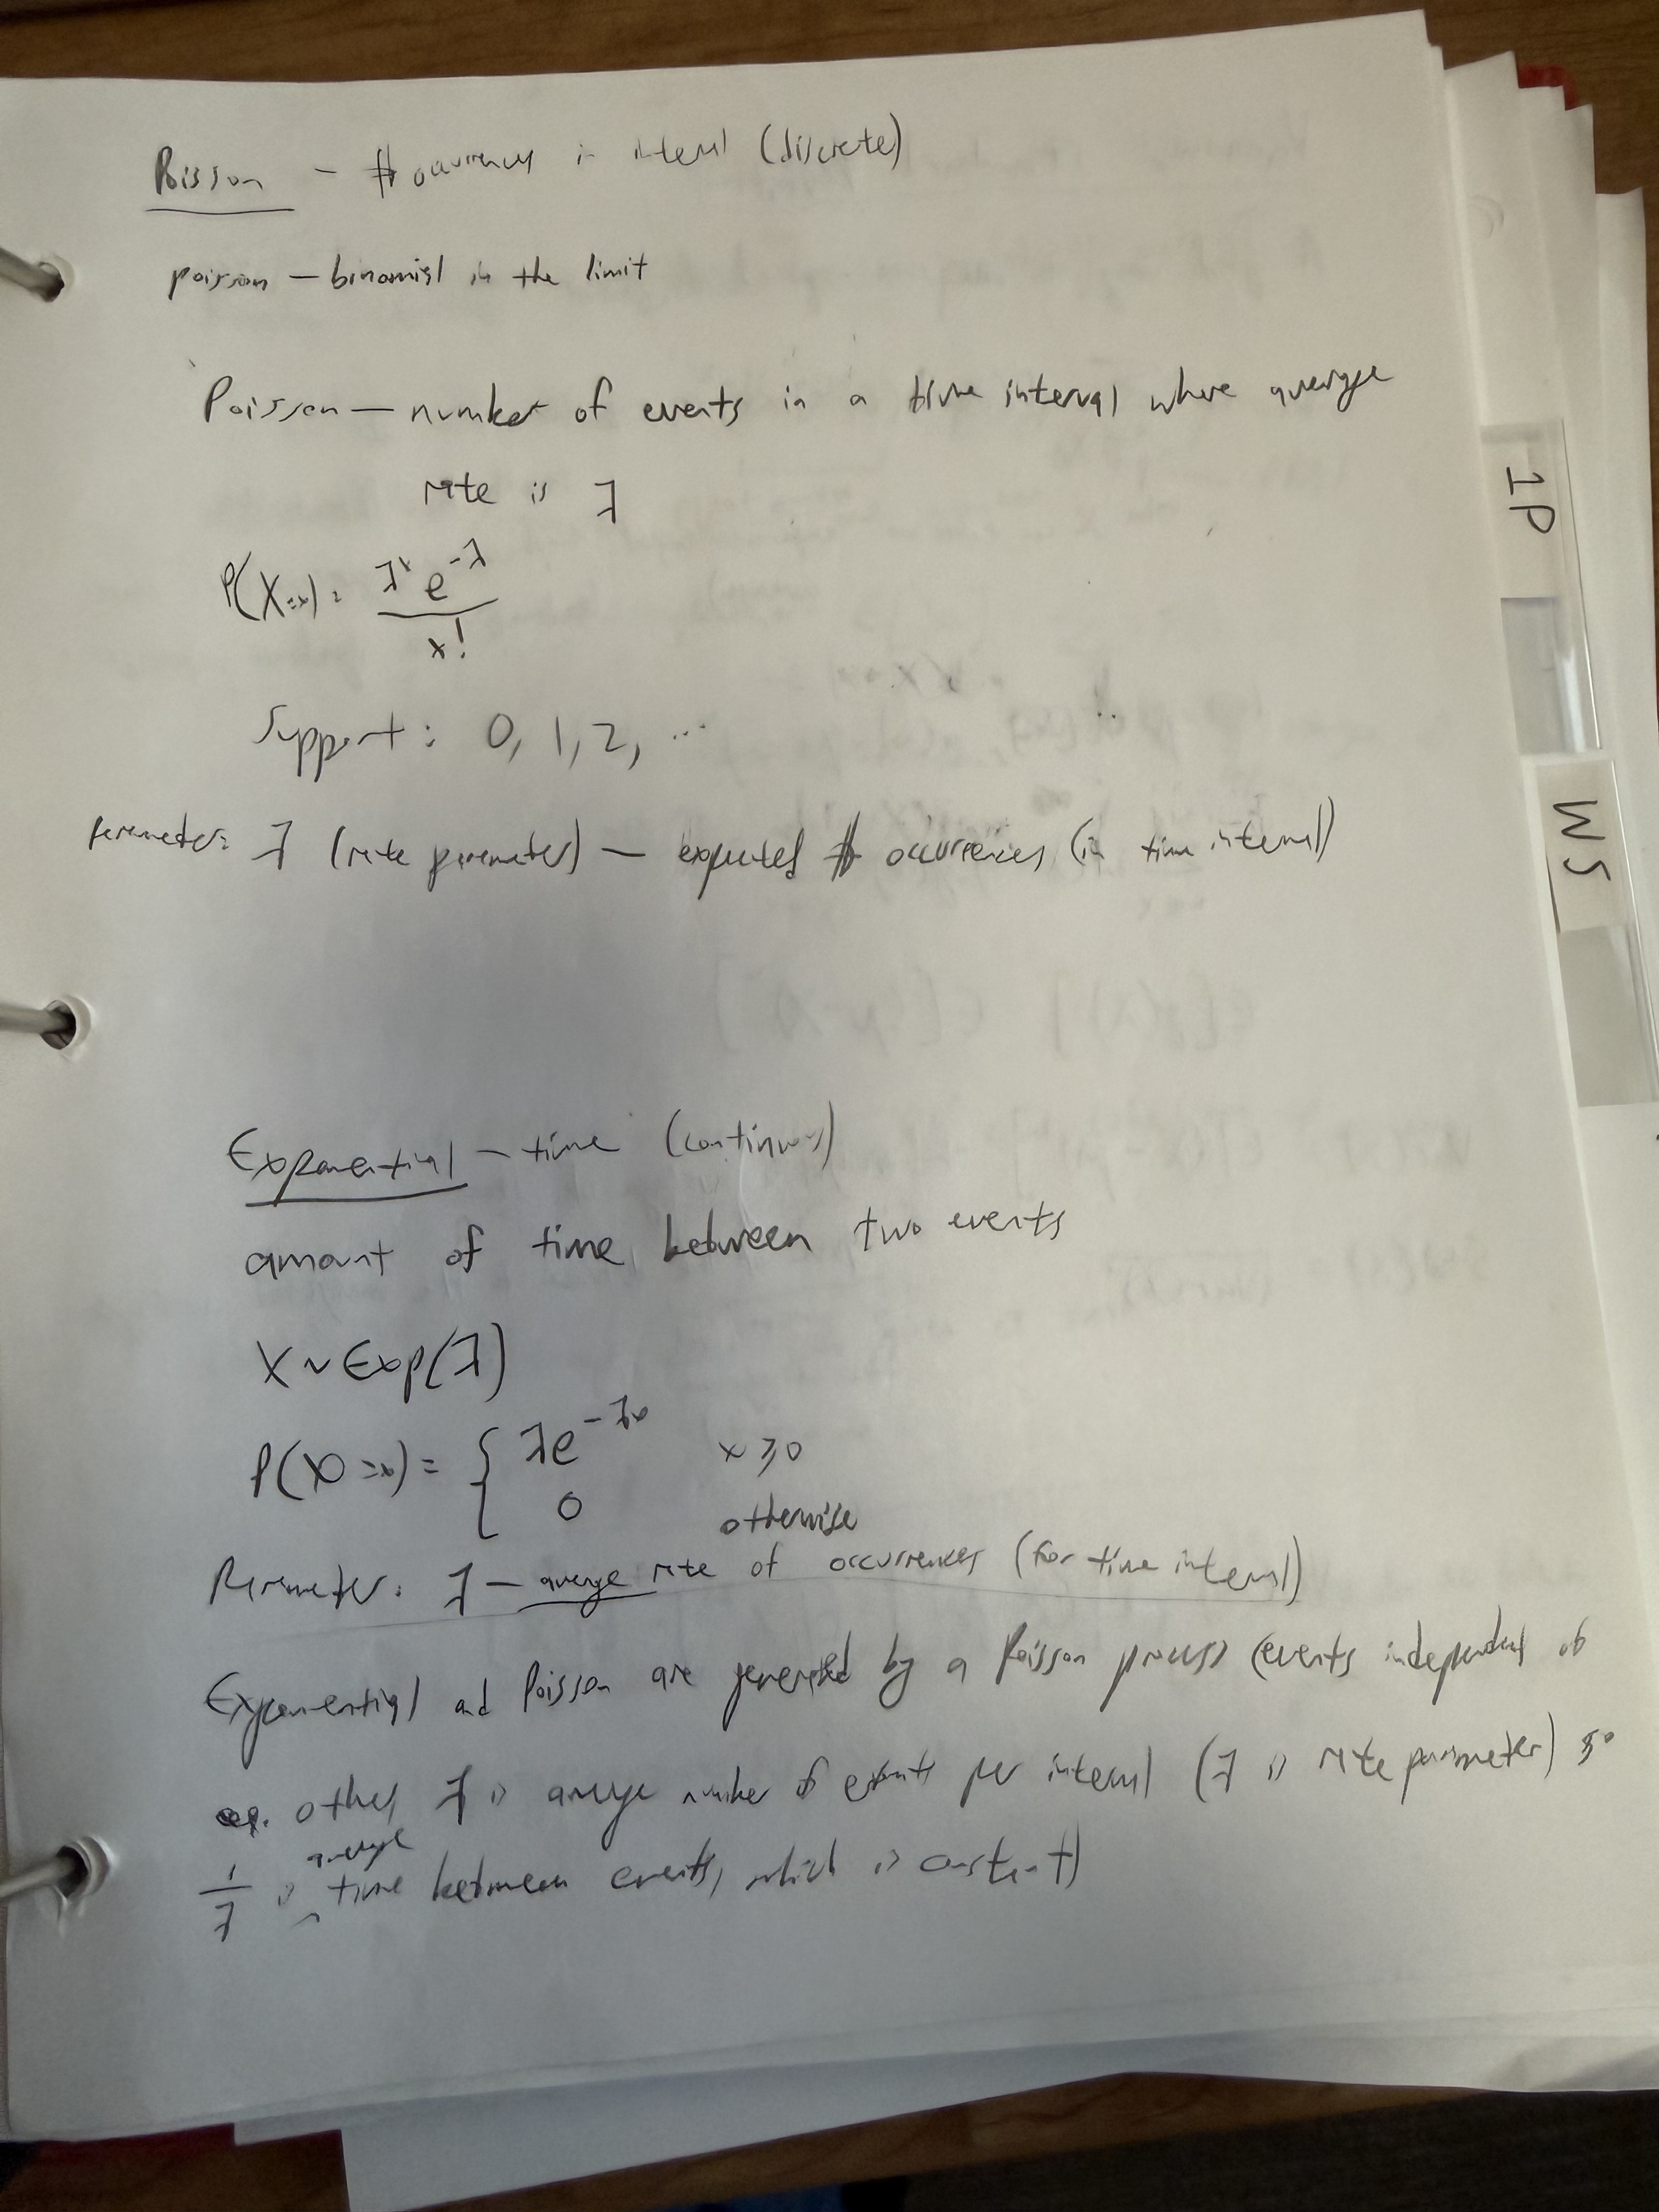 Poisson - # occurrences in interval (discrete)
poisson - binomial in the limit
Poisson - number of events in a time interval where average
rate is λ
P(X=x) = λ^x e^-λ / x!
Support: 0, 1, 2, ...
Parameter: λ (rate parameter) - expected # occurrences (in time interval)
Exponential - time (continuous)
amount of time between two events
X ~ Exp(λ)
P(X=x) = { λe^-λx x ≥ 0
0 otherwise
Parameter: λ - average rate of occurrences (for time interval)
Exponential and Poisson are generated by a Poisson process (events independent of
other, λ is average number of events per interval (λ is rate parameter) so
1/λ is average time between events, which is constant)
1P
WS